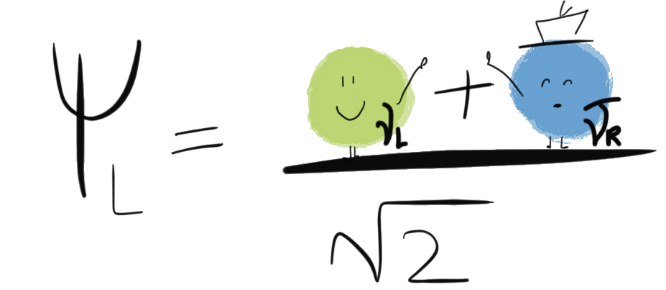 ψ_L = (ν_L + ν̄_R) / √2